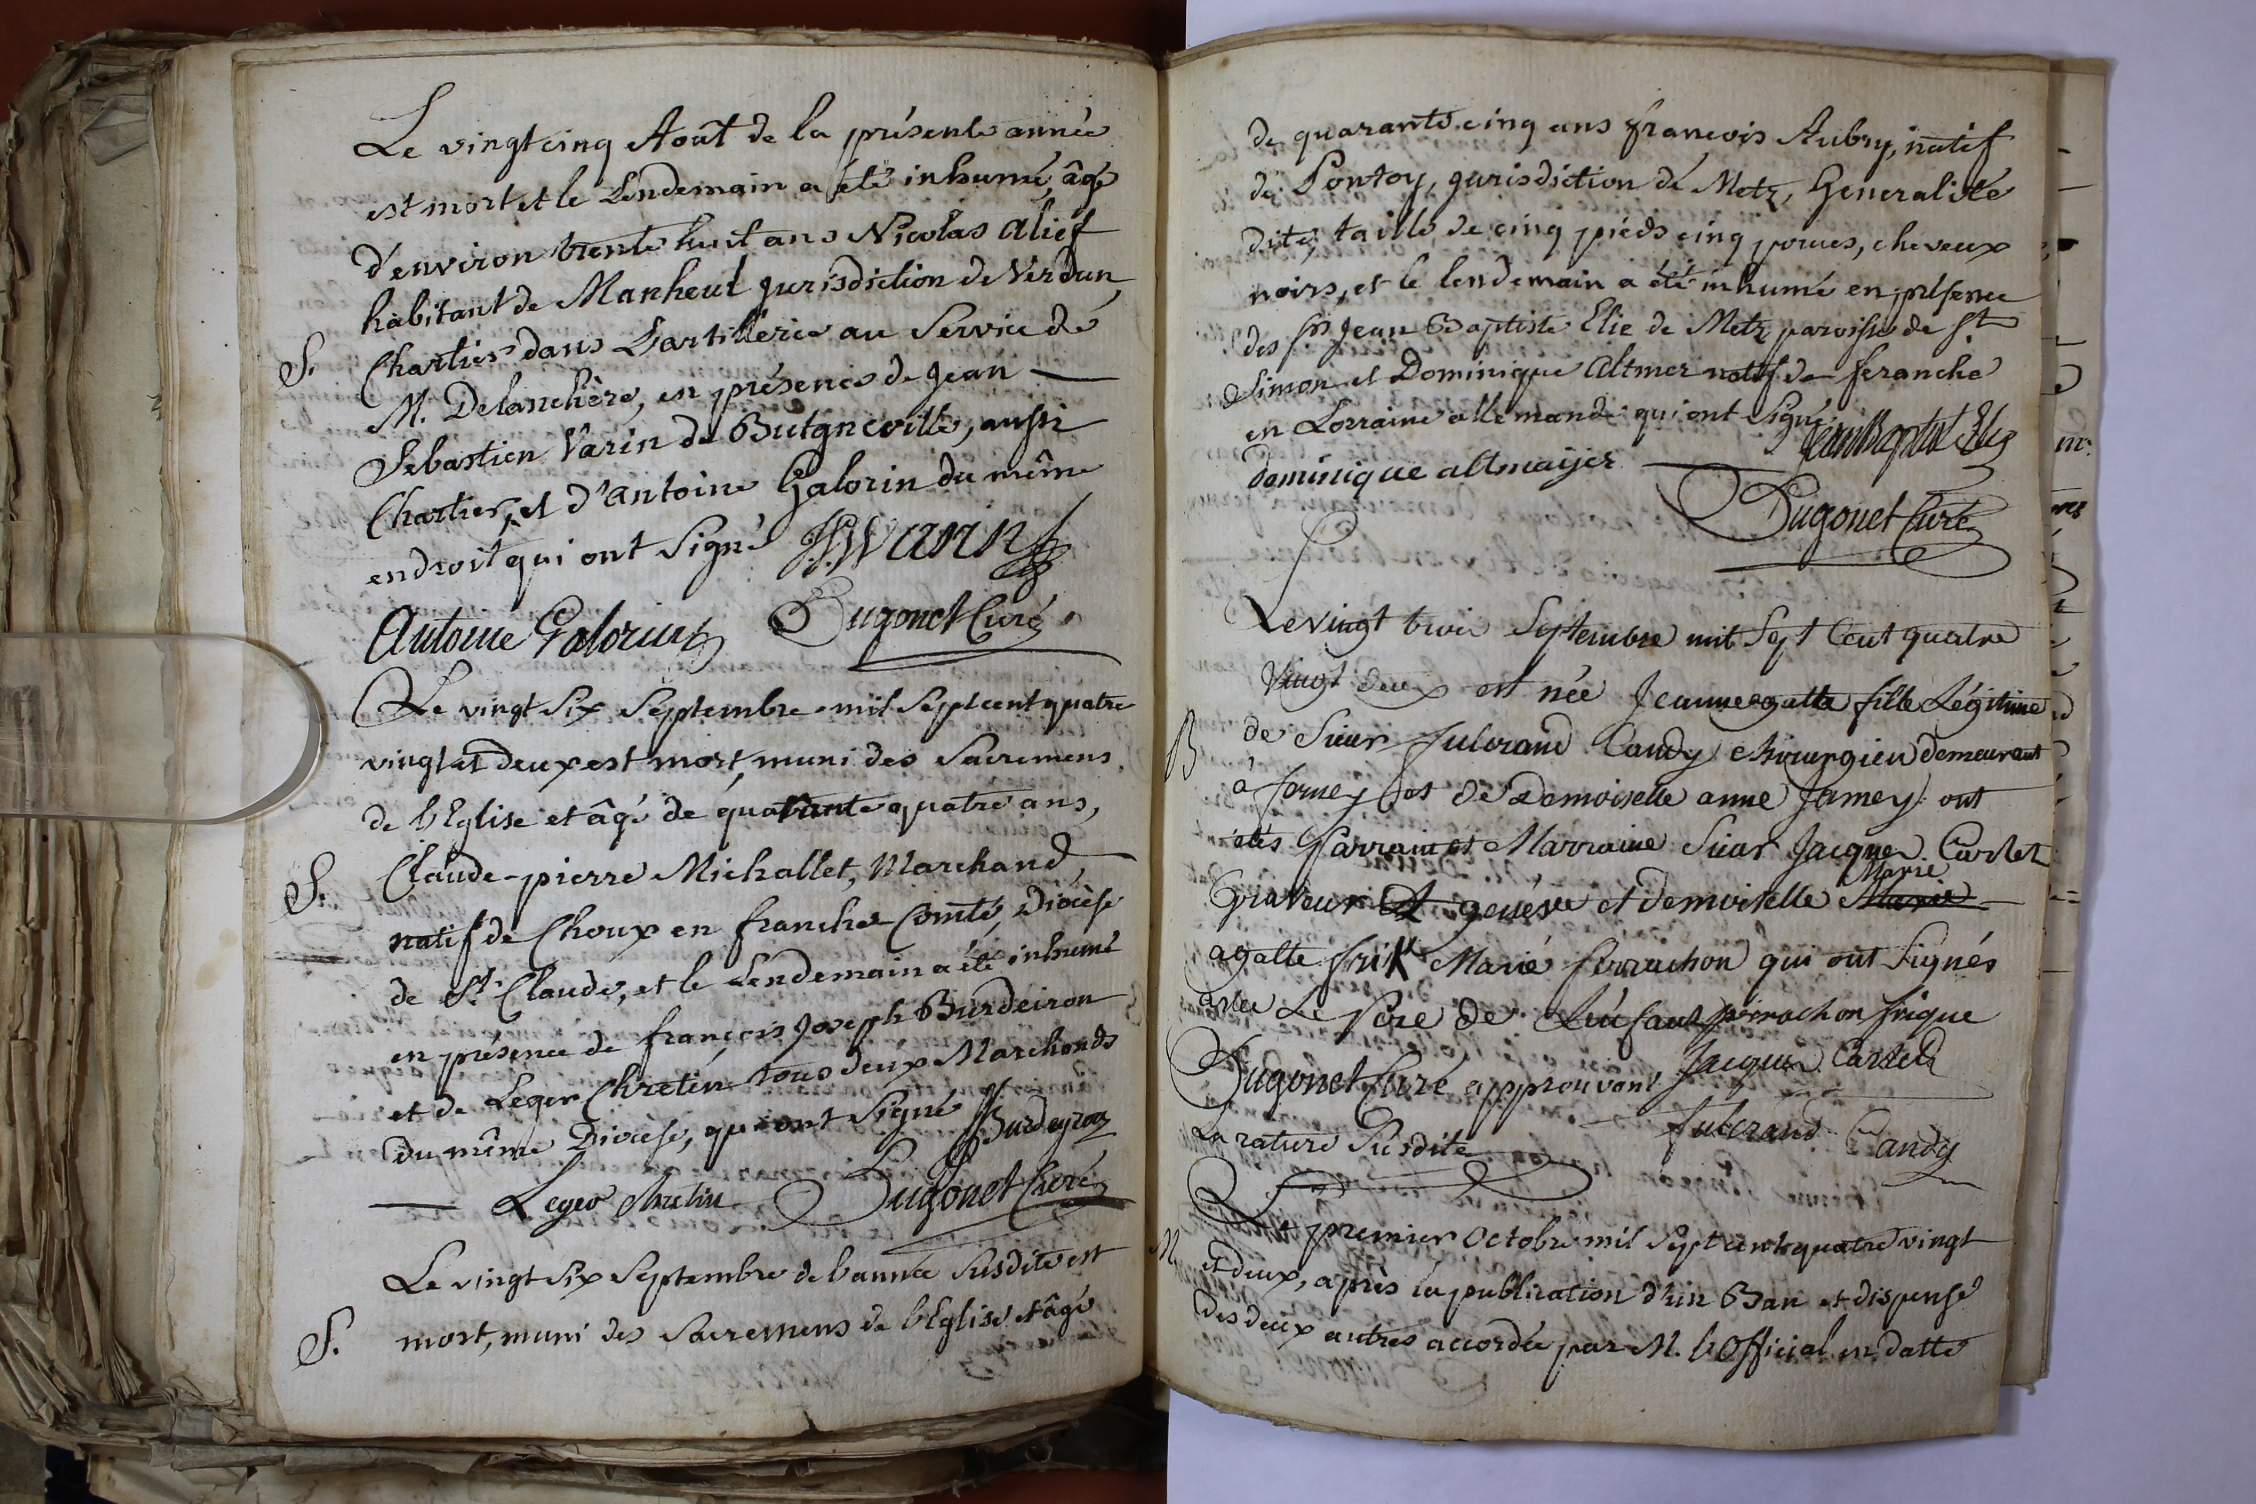 Le vingt cinq Août de la présente année
est mort et le Lendemain a été inhumé, âgé
d'environ trente huit ans Nicolas Alief
habitant de Manheul Jurisdiction de Verdun,
S. Chartier dans L'artillerie au Service de
M. Delanchère, en présence de Jean
Sebastien Varin de Butgneville, aussi
Chartier, et d'Antoine Galorin du même
endroit qui ont Signé JSWarin
Antoine Galorin Dugonet Curé
Le vingt Six Septembre mil Sept cent quatre
vingt et deux est mort, muni des Sacremens
de l'Eglise et âgé de quarante quatre ans,
S. Claude-pierre Michallet, Marchand,
natif de Choux en franche Comté, Diocèse
de St. Claude, et le Lendemain a été inhumé
en présence de françois Joseph Burdeiron
et de Leger Chretin tous deux Marchands
du même Diocèse, qui ont Signé JBurdeyron
Leger Chretin Dugonet Curé
Le vingt Six Septembre de l'année Susdite est
S. mort, muni des Sacremens de l'Eglise et âgé
de quarante cinq ans françois Aubry, natif
de Pontoy, jurisdiction de Metz, Generalité
dite, taille de cinq pieds cinq pouces, cheveux
noirs, et le lendemain a été inhumé en présence
des Srs Jean Baptiste Elie de Metz paroisse de St
Simon et Dominique Altmer natif de feranche
en Lorraine allemande qui ont Signé Jean Baptist Elie
Dominique altmayer
Dugonet Curé
Le vingt trois Septembre mil Sept Cent quatre
vingt deux est née Jeanne agatte fille Légitime
B de Sieur fulcrand Candy chirurgien demeurant
à ferney et de Demoiselle anne Jamey ont
étés Parrain et Marraine Sieur Jacques Cartet
Marie
Graveur genéve et demoiselle Marie
agatte frik Marie perrachon qui ont Signés
avec Le Pere de L'enfant perrachon frique
Dugonet Curé approuvant Jacques Cartet
La rature Susdite fulcrand Candy
Le premier Octobre mil Sept cent quatre vingt
M. et deux, après la publication d'un Ban et dispense
des deux autres accordée par M. l'Official en datte